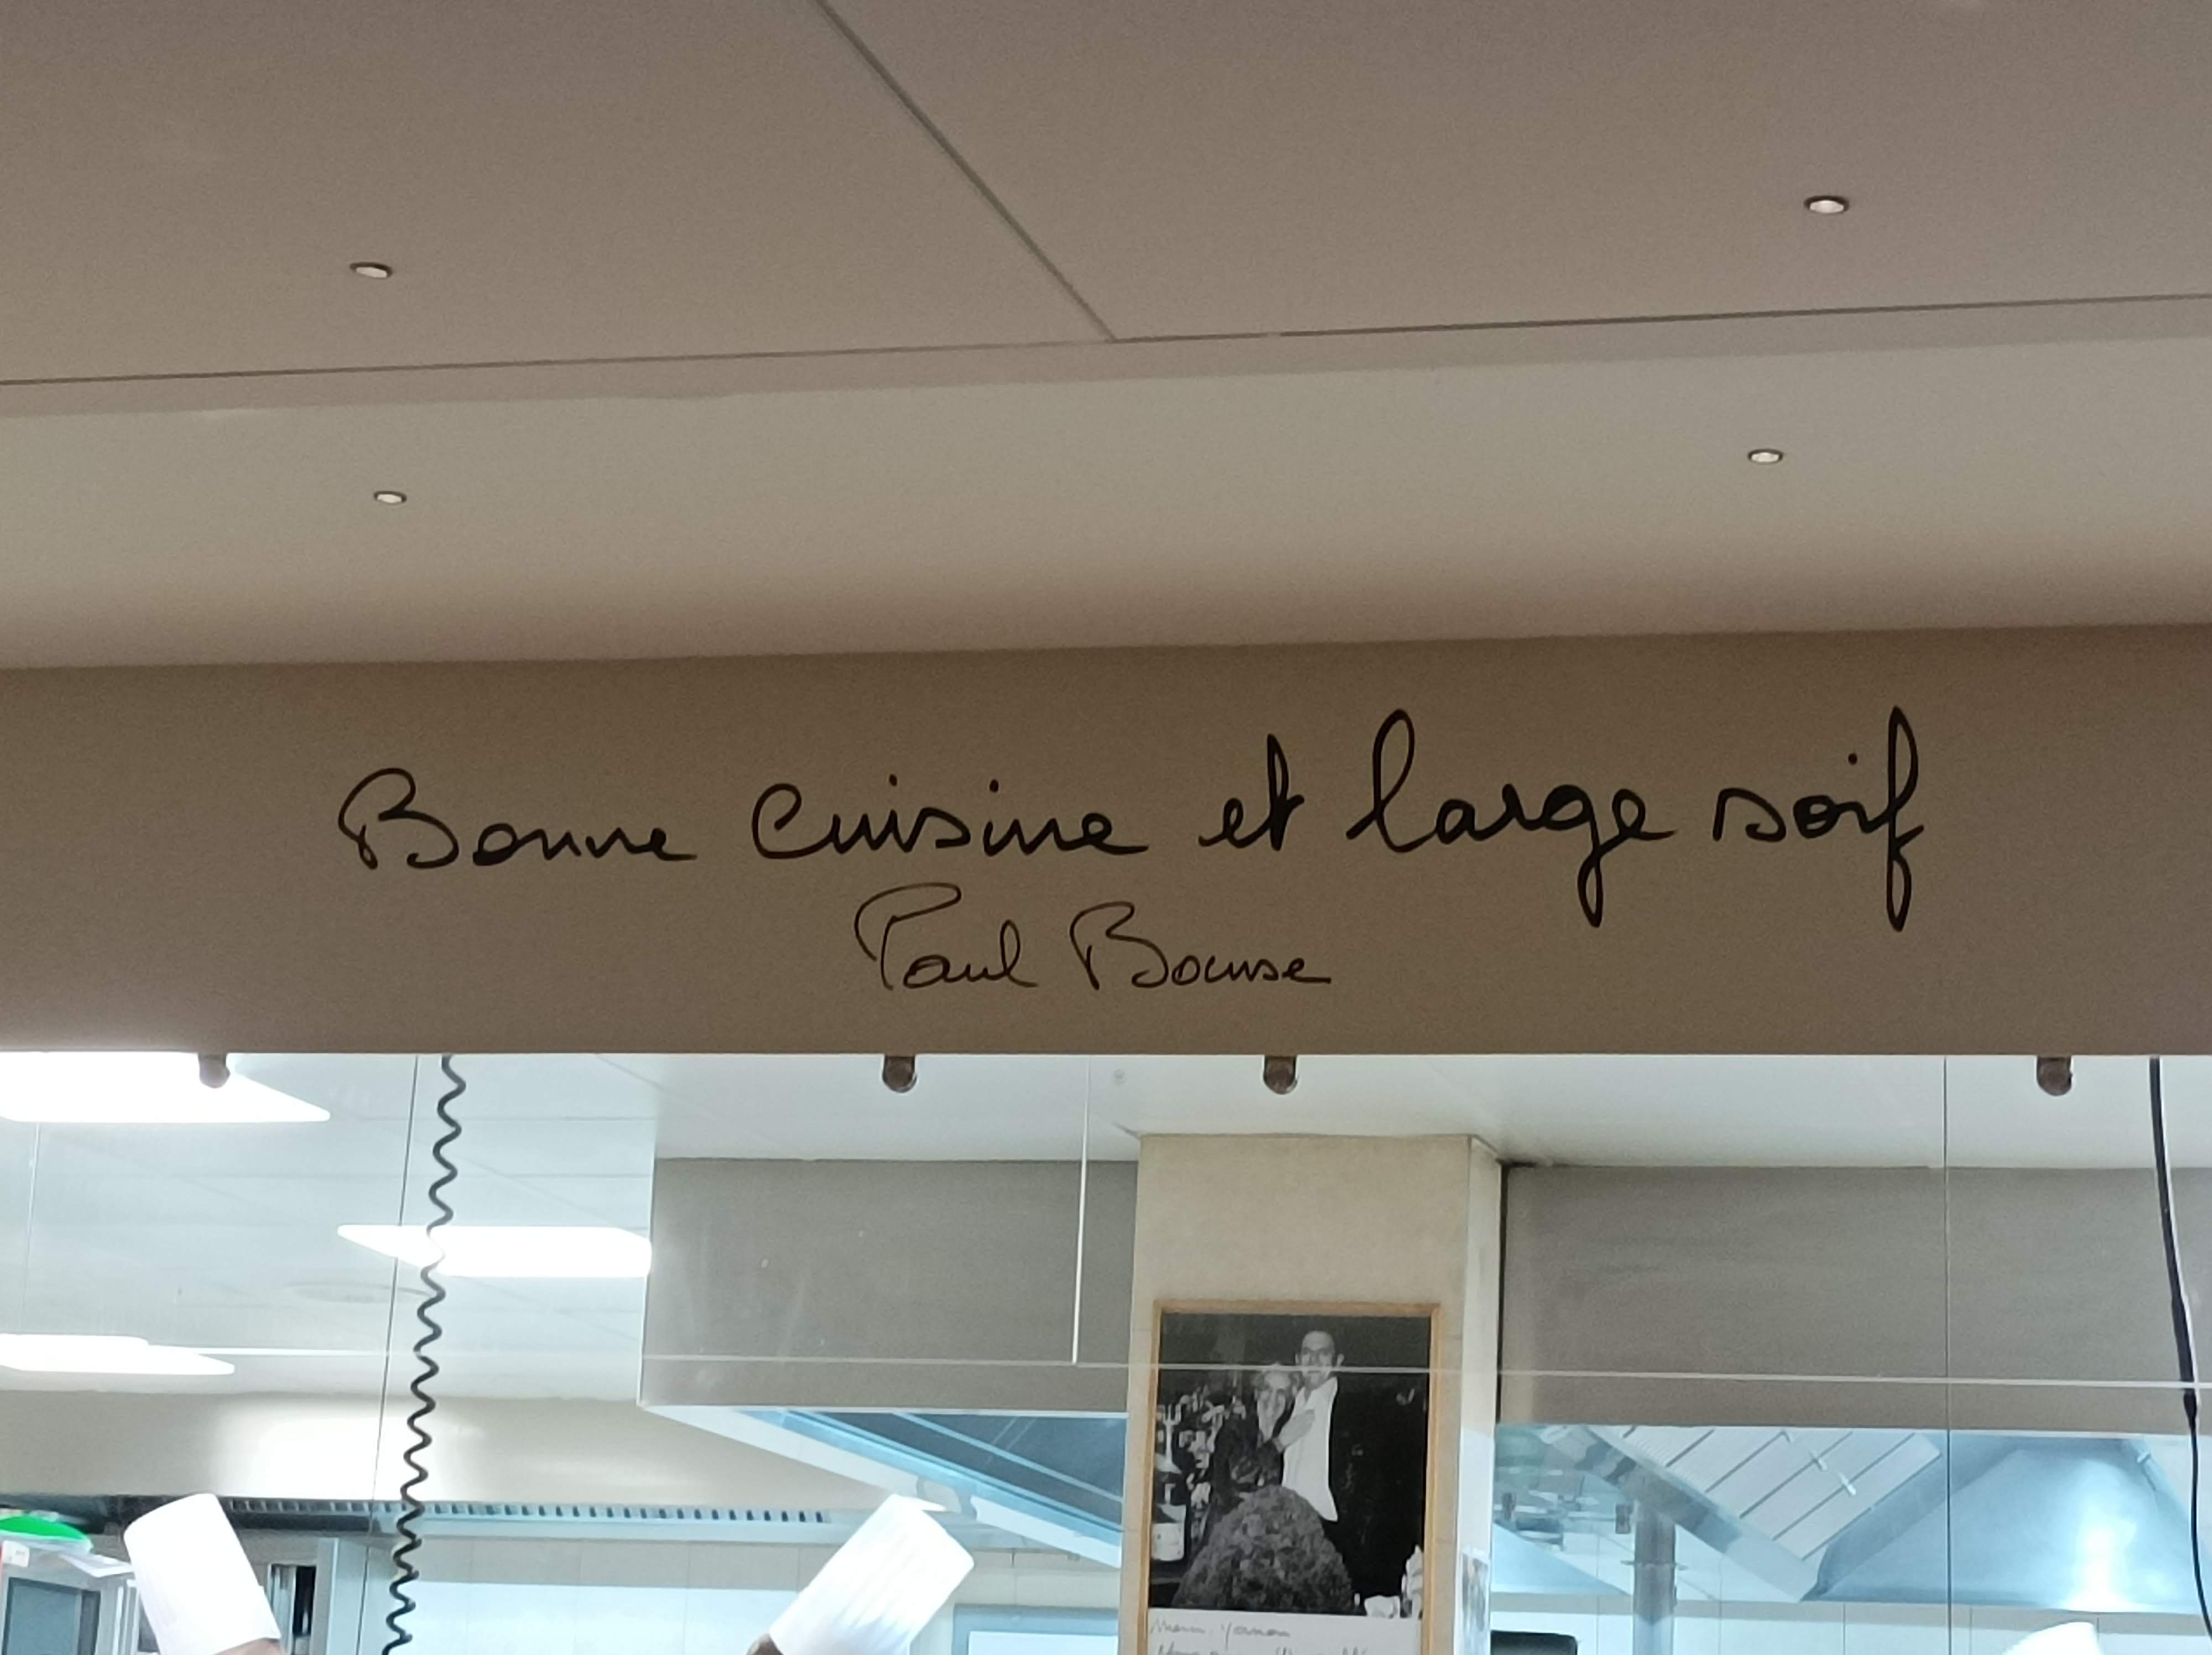 Bonne cuisine et large soif
Paul Bocuse